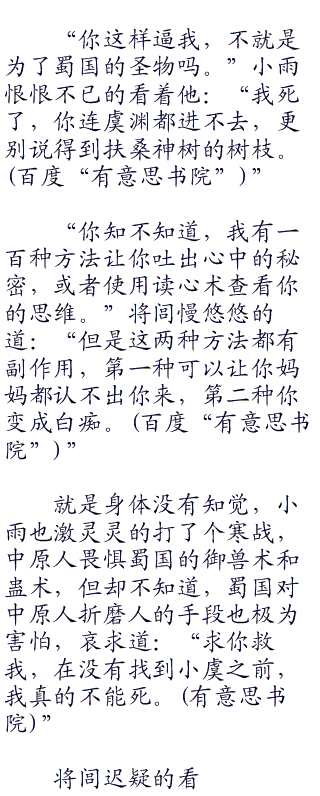 “你这样逼我，不就是
为了蜀国的圣物吗。”小雨
恨恨不已的看着他：“我死
了，你连虞渊都进不去，更
别说得到扶桑神树的树枝。
(百度“有意思书院”)”
“你知不知道，我有一
百种方法让你吐出心中的秘
密，或者使用读心术查看你
的思维。”将闾慢悠悠的
道：“但是这两种方法都有
副作用，第一种可以让你妈
妈都认不出你来，第二种你
变成白痴。(百度“有意思书
院”)”
就是身体没有知觉，小
雨也激灵灵的打了个寒战，
中原人畏惧蜀国的御兽术和
蛊术，但却不知道，蜀国对
中原人折磨人的手段也极为
害怕，哀求道：“求你救
我，在没有找到小虞之前，
我真的不能死。(有意思书
院)”
将闾迟疑的看